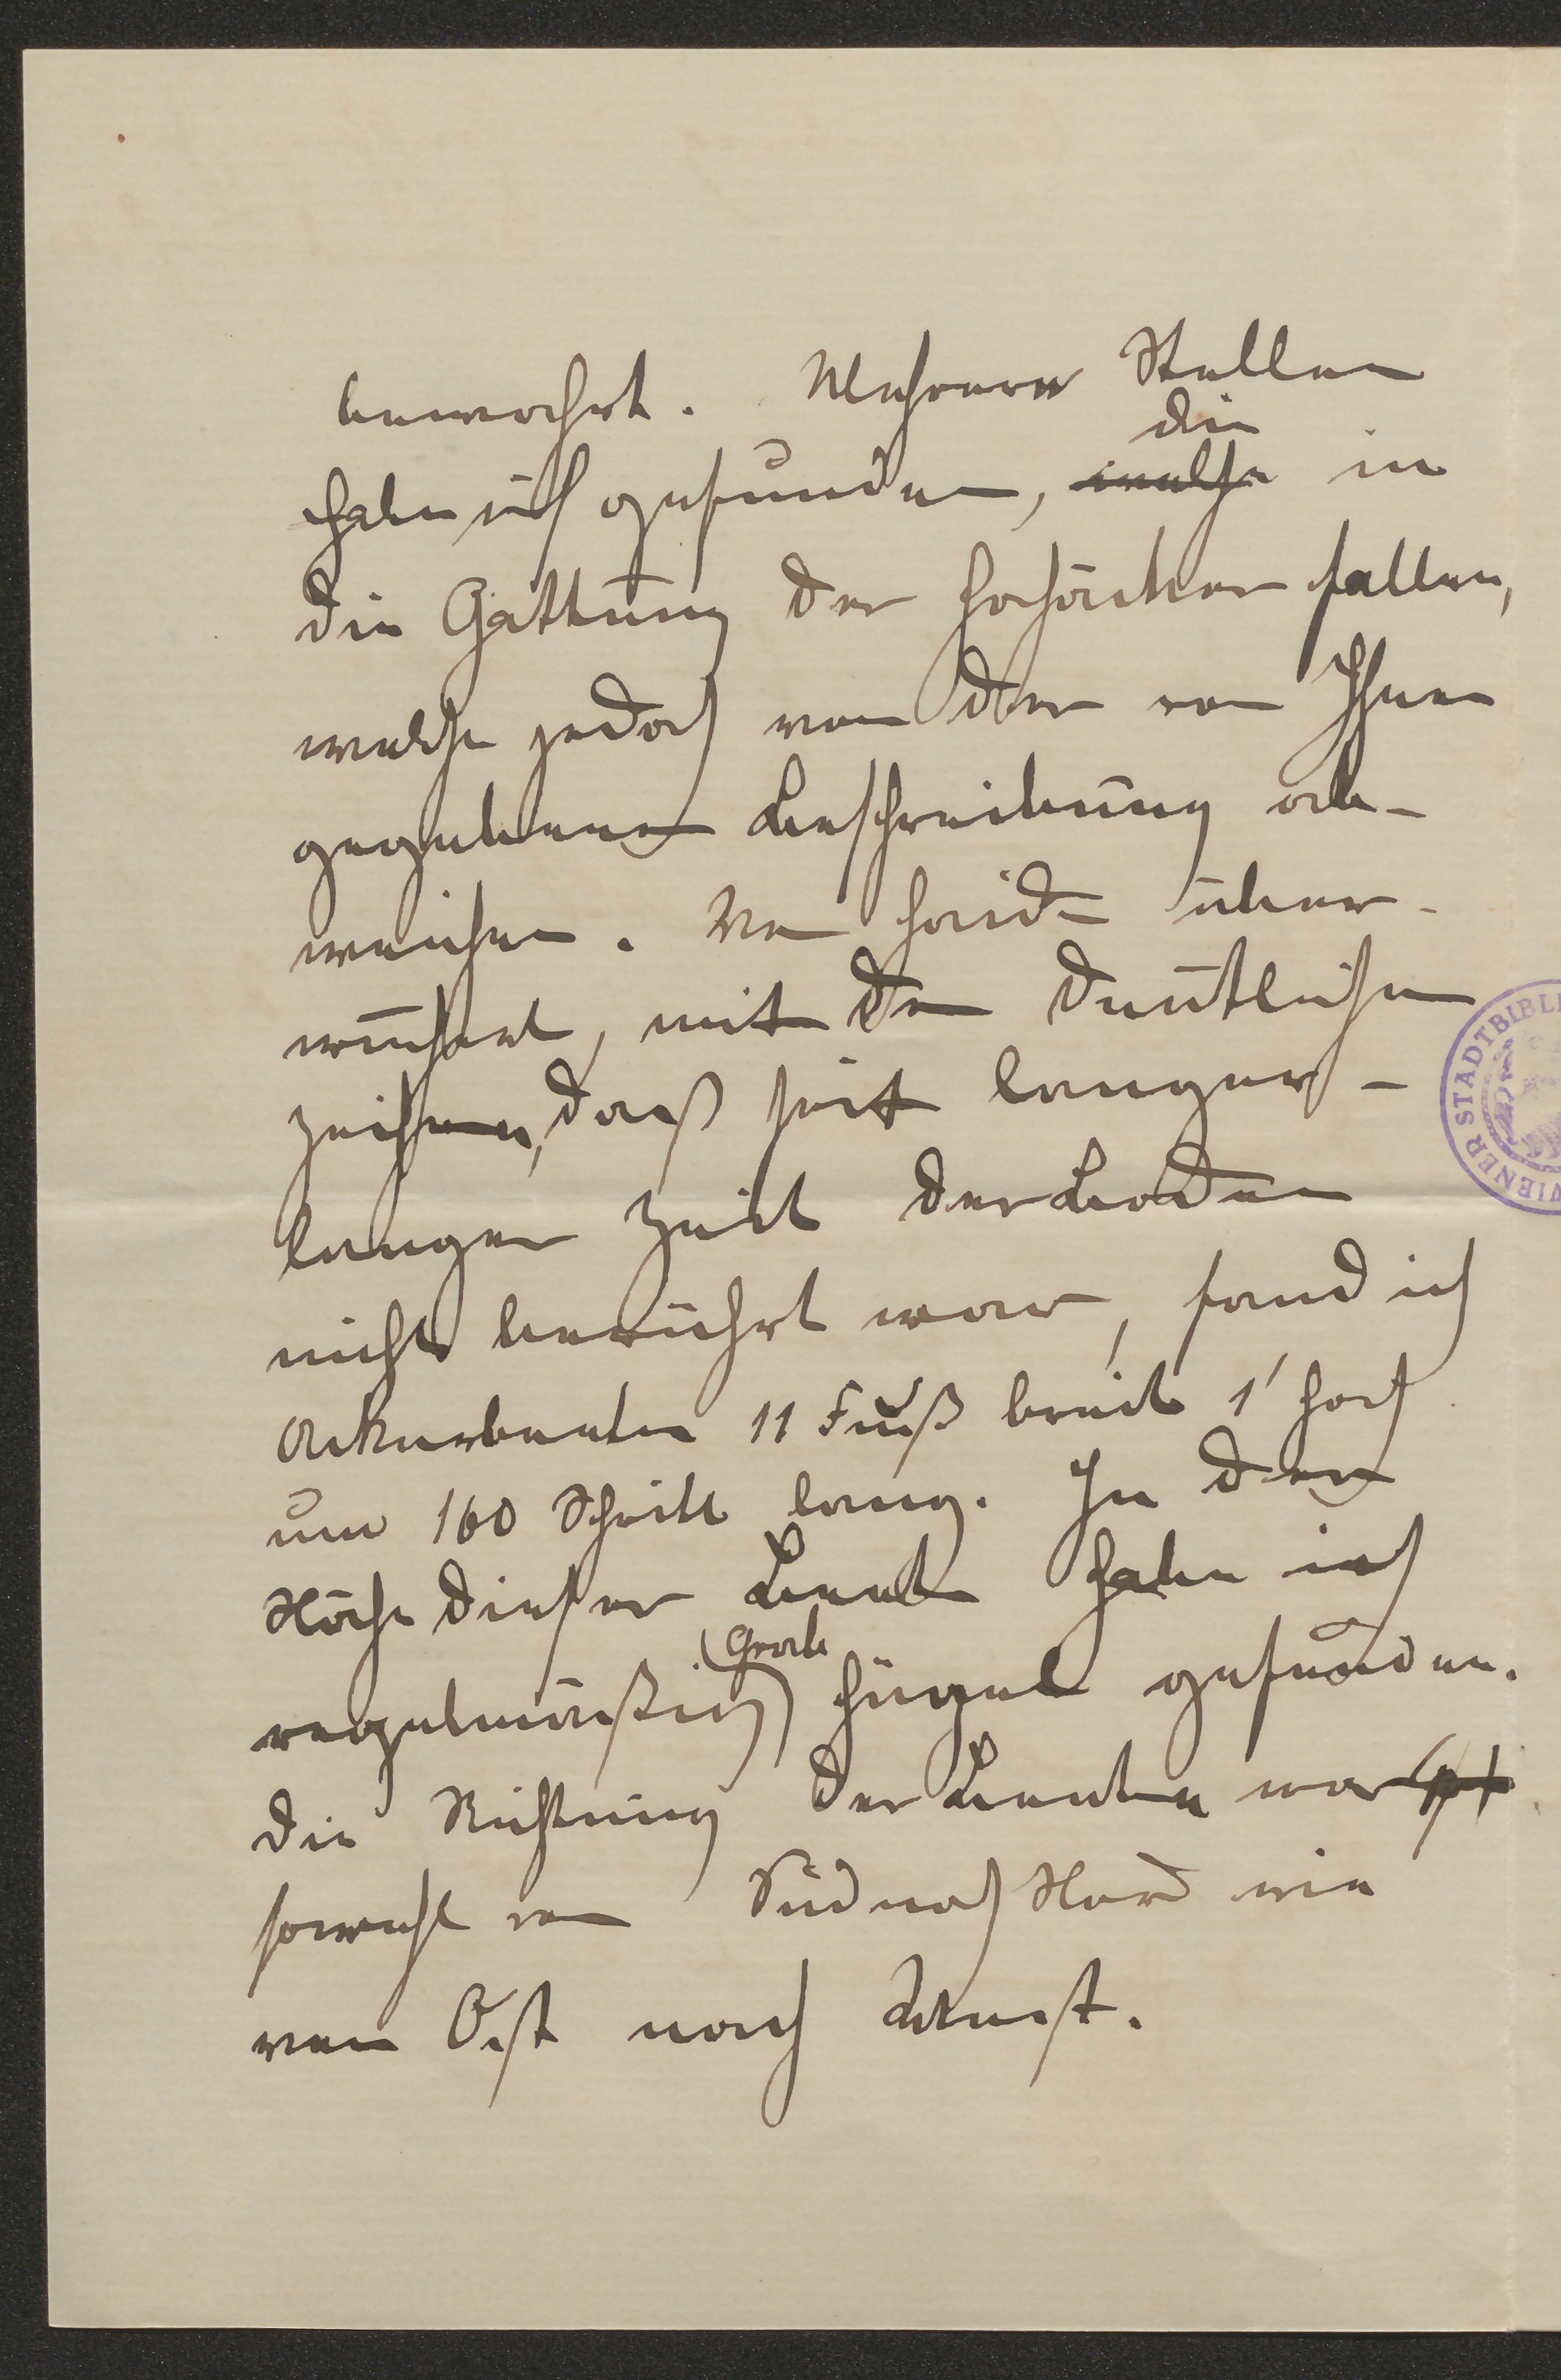 bewahrt. Mehrere Stellen
die
habe ich gefunden, welche in
die Gattung der Hochäcker fallen,
welche jedoch von der von Ihnen
gegebenen Beschreibung ab-
weichen. Von Haide über-
wuchert, mit den deutlichen
Zeichen, daß seit langer-
langer Zeit der Boden
nicht berührt war, fand ich
Ackerbeete 11 Fuß breit 1' hoch
und 160 Schritt lang. In der
Nähe dieser Beete habe ich
regelmäßig (Grab) Hügel gefunden.
die Richtung der Beete war
sowohl von Süd nach Nord wie
von Ost nach West.
WIENER STADTBIBLI